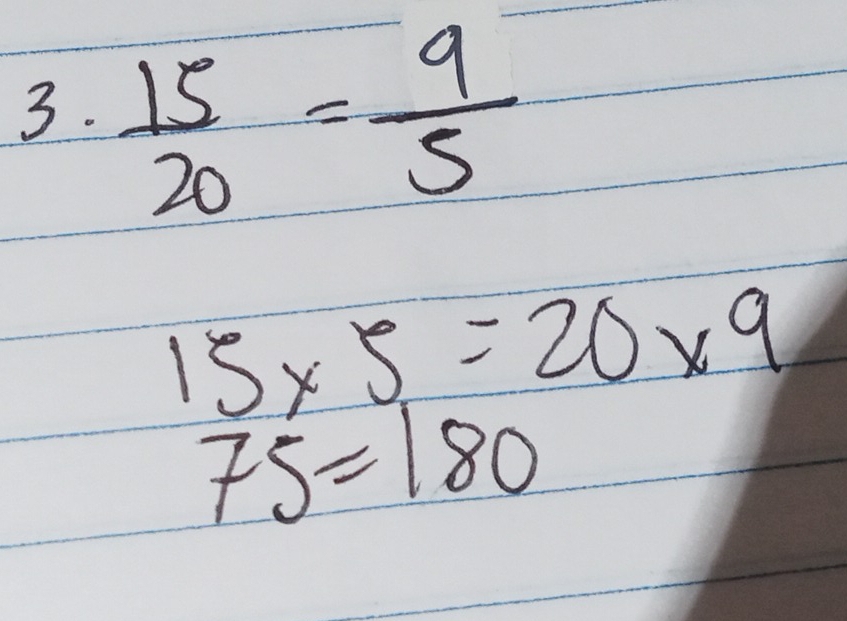 3. 15/20 = 9/5
15 x 5 = 20 x 9
75 = 180